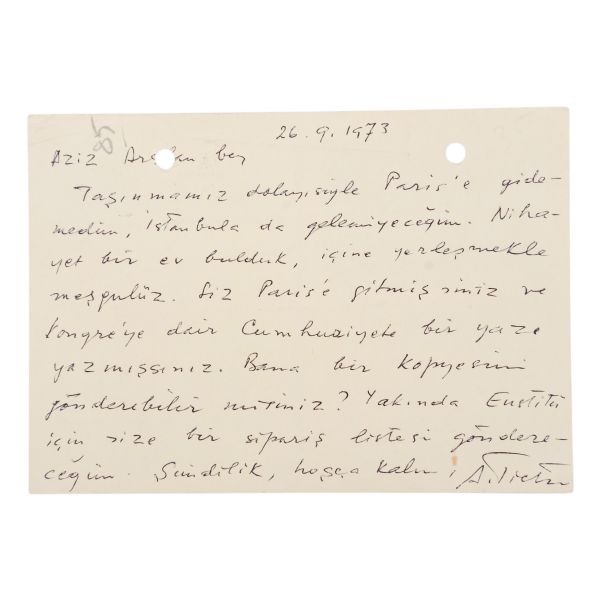 85
26.9.1973
Aziz Arslan bey
Taşınmamız dolayısiyle Paris'e gide-
medim, İstanbula da gelemiyeceğim. Niha-
yet bir ev bulduk, içine yerleşmekle
meşgulüz. Siz Paris'e gitmişsiniz ve
Kongre'ye dair Cumhuriyete bir yazı
yazmışsınız. Bana bir kopyesini
gönderebilir misiniz? Yakında Enstitü
için size bir sipariş listesi göndere-
ceğim. Şimdilik, hoşça kalın! A. Tietze